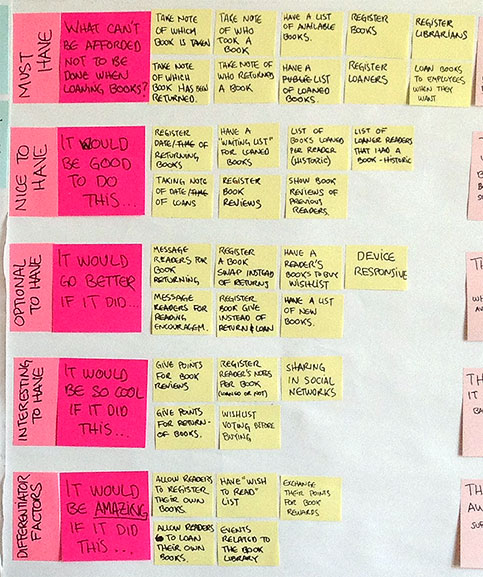 MUST
HAVE
WHAT CAN'T
BE AFFORDED
NOT TO BE
DONE WHEN
LOANING BOOKS?
TAKE NOTE
OF WHICH
BOOK IS TAKEN
TAKE NOTE
OF WHO
TOOK A
BOOK
HAVE A LIST
OF AVAILABLE
BOOKS.
REGISTER
BOOKS
REGISTER
LIBRARIANS
TAKE NOTE
OF WHICH
BOOK HAS BEEN
RETURNED.
TAKE NOTE OF
WHO RETURNED A
BOOK
HAVE A
PUBLIC LIST
OF LOANED
BOOKS.
REGISTER
LOANERS
LOAN BOOKS
TO EMPLOYEES
WHEN THEY
WANT
NICE TO
HAVE
IT WOULD
BE GOOD
TO DO
THIS...
REGISTER
DATE/TIME OF
RETURNING
BOOKS
HAVE A
"WAITING LIST"
FOR LOANED
BOOKS
LIST OF
BOOKS LOANED
PER READER
(HISTORIC)
LIST OF
LOANER READERS
THAT HAD A
BOOK - HISTORIC
TAKING NOTE
OF DATE/TIME
OF LOANS
REGISTER
BOOK
REVIEWS
SHOW BOOK
REVIEWS OF
PREVIOUS
READERS.
OPTIONAL
TO HAVE
IT WOULD
GO BETTER
IF IT DID...
MESSAGE
READERS FOR
BOOK
RETURNING
REGISTER
A BOOK
SWAP INSTEAD
OF RETURN
HAVE A
READER'S
BOOKS TO BUY
WISHLIST
DEVICE
RESPONSIVE
MESSAGE
READERS FOR
READING
ENCOURAGEM.
REGISTER
BOOK GIVE
INSTEAD OF
RETURN & LOAN
HAVE A LIST
OF NEW
BOOKS.
INTERESTING
TO HAVE
IT WOULD
BE SO COOL
IF IT DID
THIS...
GIVE POINTS
FOR BOOK
REVIEWS
REGISTER
READER'S NOTES
PER BOOK
(LOANED OR NOT)
SHARING
IN SOCIAL
NETWORKS
GIVE POINTS
FOR RETURN-
OF BOOKS.
WISHLIST
VOTING BEFORE
BUYING
DIFFERENTIATOR
FACTORS
IT WOULD
BE AMAZING
IF IT DID
THIS...
ALLOW READERS
TO REGISTER
THEIR OWN
BOOKS.
HAVE "WISH
TO READ"
LIST
EXCHANGE
THEIR POINTS
FOR BOOK
REWARDS
ALLOW READERS
TO LOAN
THEIR OWN
BOOKS.
EVENTS
RELATED TO
THE BOOK
LIBRARY